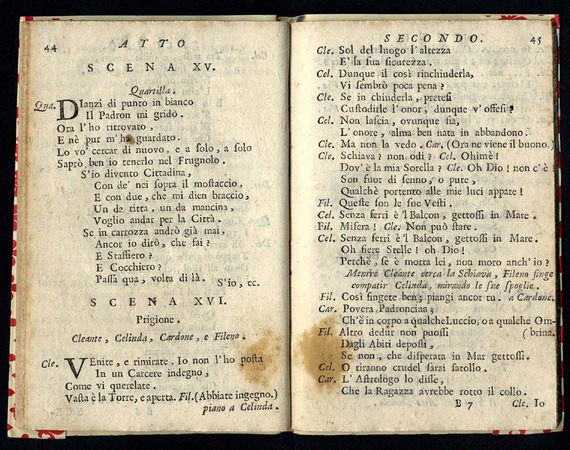 44
ATTO
SCENA XV.
Quartilla.
Qua. DIanzi di punto in bianco
Il Padron mi gridò.
Ora l'ho ritrovato,
E nè pur m'ha guardato.
Lo vo' cercar di nuovo, e a solo, a solo
Saprò ben io tenerlo nel Frugnolo.
S'io divento Cittadina,
Con de' nei sopra il mostaccio,
E con due, che mi dien braccio,
Un da ritta, un da mancina,
Voglio andar per la Città.
Se in carrozza andrò già mai,
Ancor io dirò, che fai?
E Staffiero?
E Cocchiero?
Passa qua, volta di là.
S'io, ec.
SCENA XVI.
Prigione.
Cleante, Celinda, Cardone, e Fileno.
Cle. VEnite, e rimirate. Io non l'ho posta
In un Carcere indegno,
Come vi querelate.
Vasta è la Torre, e aperta. Fil. (Abbiate ingegno.)
piano a Celinda.
SECONDO.
45
Cle. Sol del luogo l'altezza
E' la sua sicurezza.
Cel. Dunque il così rinchiuderla,
Vi sembrò poca pena?
Cle. Se in chiuderla, pretesi
Custodirle l'onor, dunque v'offesi?
Cel. Non lascia, ovunque sia,
L'onore, alma ben nata in abbandono.
Cle. Ma non la vedo. Car. (Ora ne viene il buono.)
Cle. Schiava? non odi? Cel. Ohimè!
Dov'è la mia Sorella? Cle. Oh Dio! non c'è!
Son fuor di senno, o pure,
Qualchè portento alle mie luci appare!
Fil. Queste son le sue Vesti.
Cel. Senza ferri è 'l Balcon, gettossi in Mare.
Fil. Misera! Cle. Non può stare.
Cel. Senza ferri è 'l Balcon, gettossi in Mare.
Oh fiere Stelle! oh Dio!
Perchè, se è morta lei, non moro anch'io?
Mentre Cleante cerca la Schiava, Fileno finge
compatir Celinda, mirando le sue spoglie.
Fil. Così fingete ben; piangi ancor tu. a Cardone.
Car. Povera Padroncina;
Ch'è in corpo a qualche Luccio, o a qualche Om-
Fil. Altro dedur non puossi (brina.
Dagli Abiti deposti,
Se non, che disperata in Mar gettossi.
Cel. O tiranno crudel sarai satollo.
Car. L'Astrologo lo disse,
Che la Ragazza avrebbe rotto il collo.
B 7
Cle. Io